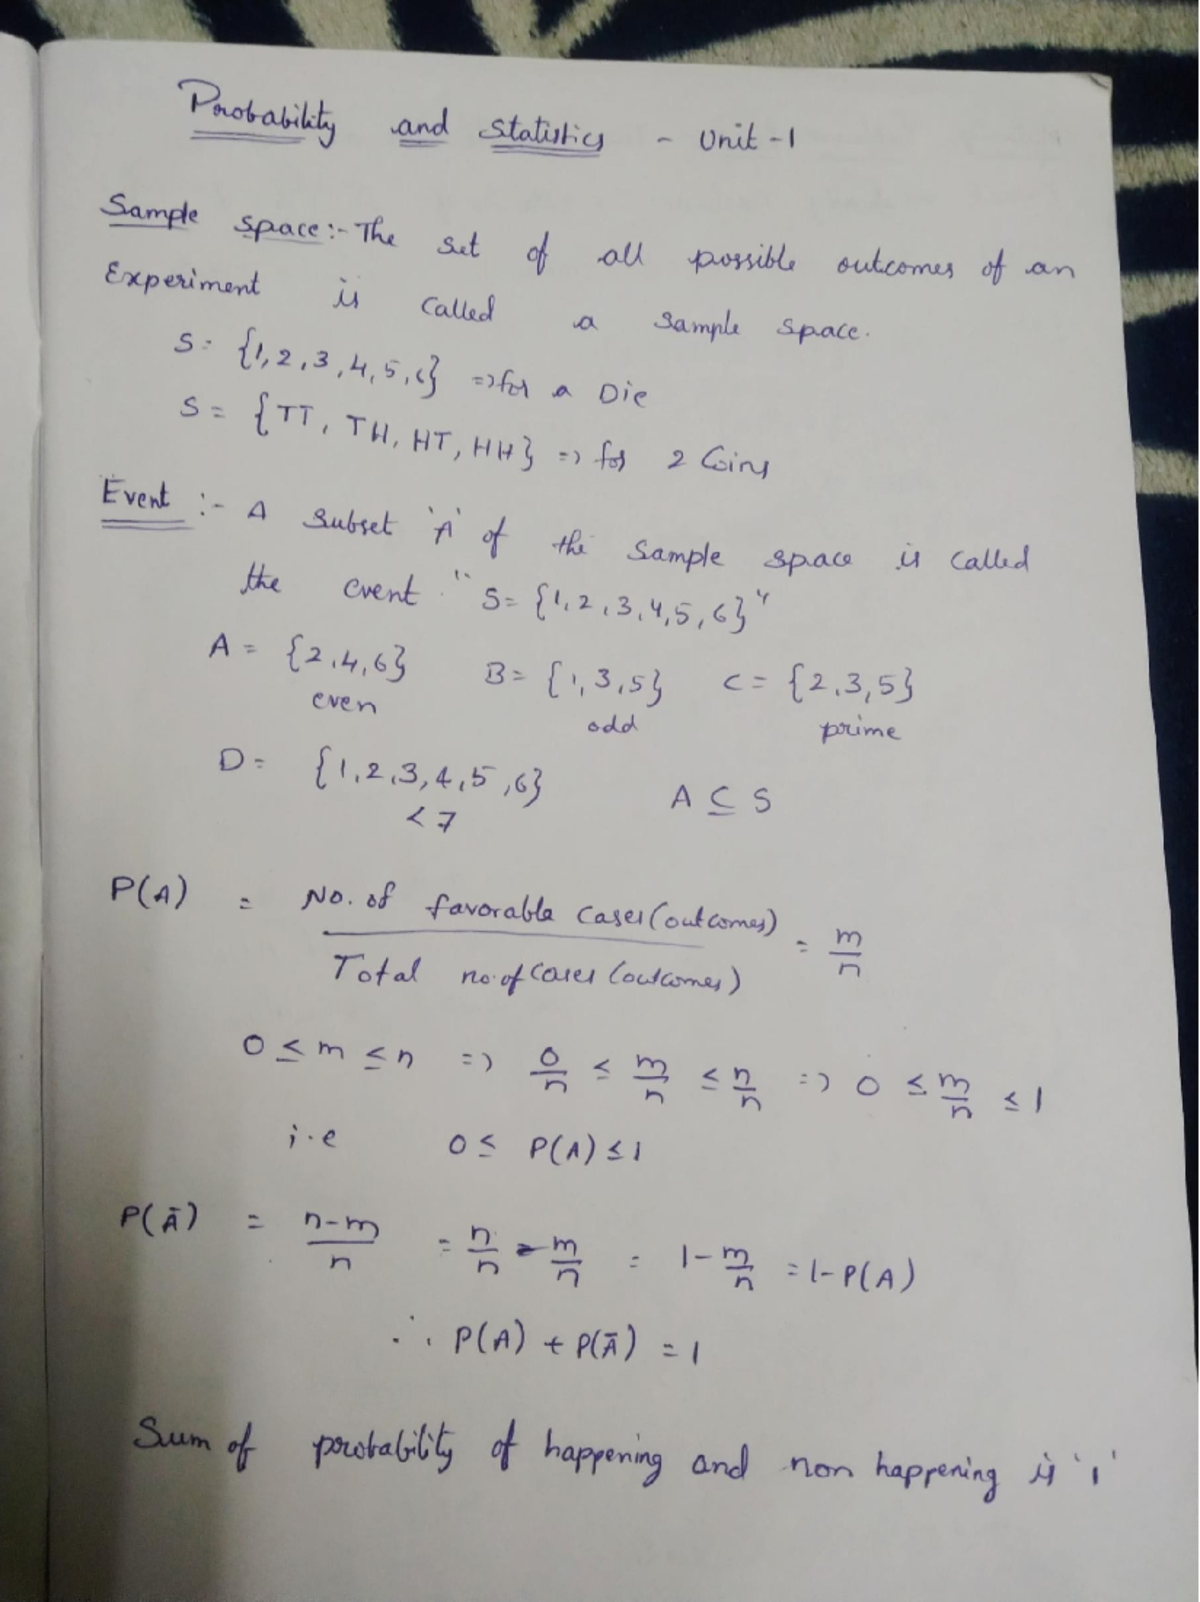 Probability and Statistics - Unit-1
Sample space:- The set of all possible outcomes of an
Experiment is called a sample space.
S = {1,2,3,4,5,6} => for a Die
S = {TT, TH, HT, HH} => for 2 Coins
Event :- A subset 'A' of the sample space is called
the event. "S= {1,2,3,4,5,6}"
A = {2,4,6} B= {1,3,5} C= {2,3,5}
even odd prime
D= {1,2,3,4,5,6} A ⊆ S
<7
P(A) = No. of favorable cases (outcomes) / Total no. of cases (outcomes) = m/n
0 ≤ m ≤ n => 0/n ≤ m/n ≤ n/n => 0 ≤ m/n ≤ 1
i.e 0 ≤ P(A) ≤ 1
P(Ā) = n-m/n = n/n - m/n = 1- m/n = 1-P(A)
∴ P(A) + P(Ā) = 1
Sum of probability of happening and non happening is '1'